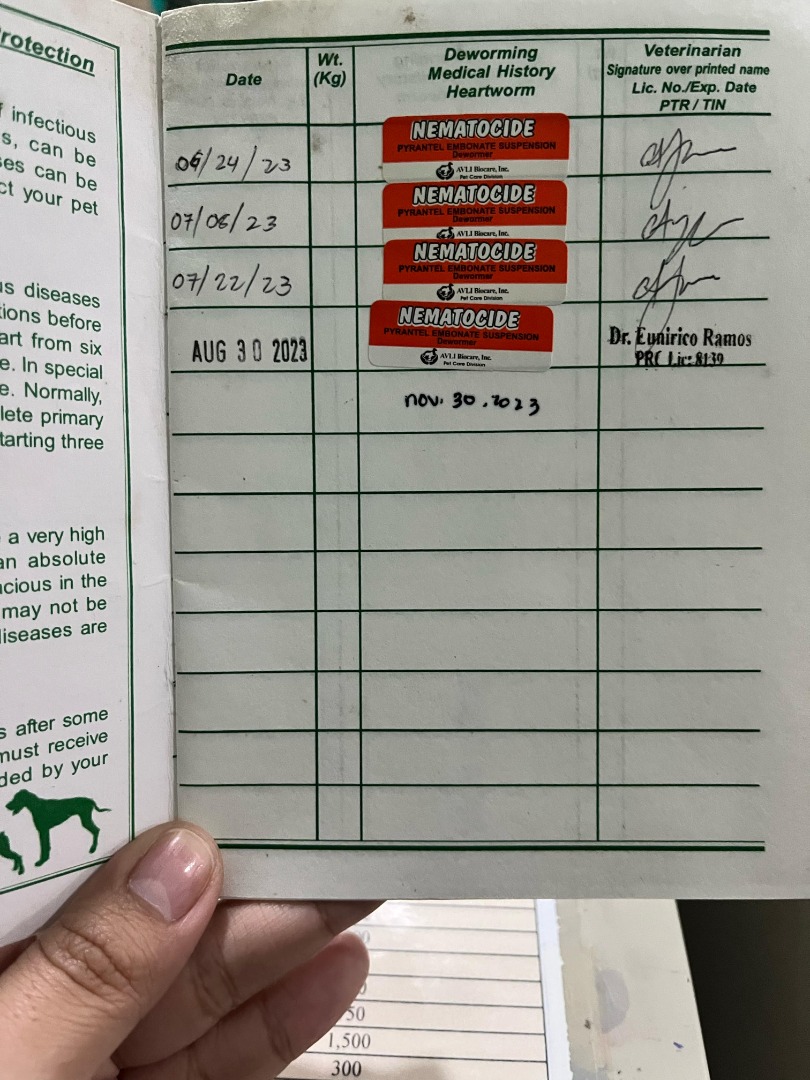 rotection
f infectious
s, can be
ses can be
ct your pet
us diseases
tions before
art from six
e. In special
e. Normally,
lete primary
tarting three
a very high
an absolute
acious in the
may not be
diseases are
s after some
must receive
ded by your
Date
Wt.
(Kg)
Deworming
Medical History
Heartworm
Veterinarian
Signature over printed name
Lic. No./Exp. Date
PTR / TIN
06/24/23
NEMATOCIDE
PYRANTEL EMBONATE SUSPENSION
Dewormer
AVLI Biocare, Inc.
Pet Care Division
07/06/23
NEMATOCIDE
PYRANTEL EMBONATE SUSPENSION
Dewormer
AVLI Biocare, Inc.
07/22/23
NEMATOCIDE
PYRANTEL EMBONATE SUSPENSION
Dewormer
AVLI Biocare, Inc.
Pet Care Division
AUG 30 2023
NEMATOCIDE
PYRANTEL EMBONATE SUSPENSION
Dewormer
AVLI Biocare, Inc.
Pet Care Division
Dr. Eunirico Ramos
PRC Lic: 8139
nov. 30.2023
50
1,500
300